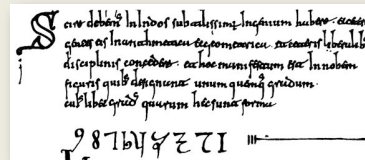 Scire debem̄ In Indos subtilissimū Ingenium habere. et ceteras
gentes eis In arithmetica et geometrica. et ceteris liberalib;
disciplinis concedere. et hoc manifestum est In nobem
figuris quib; designant unum quemq; gradum
cuiuslibet gradus. quarum hec sunt forma
9 8 7 6 5 4 3 2 1